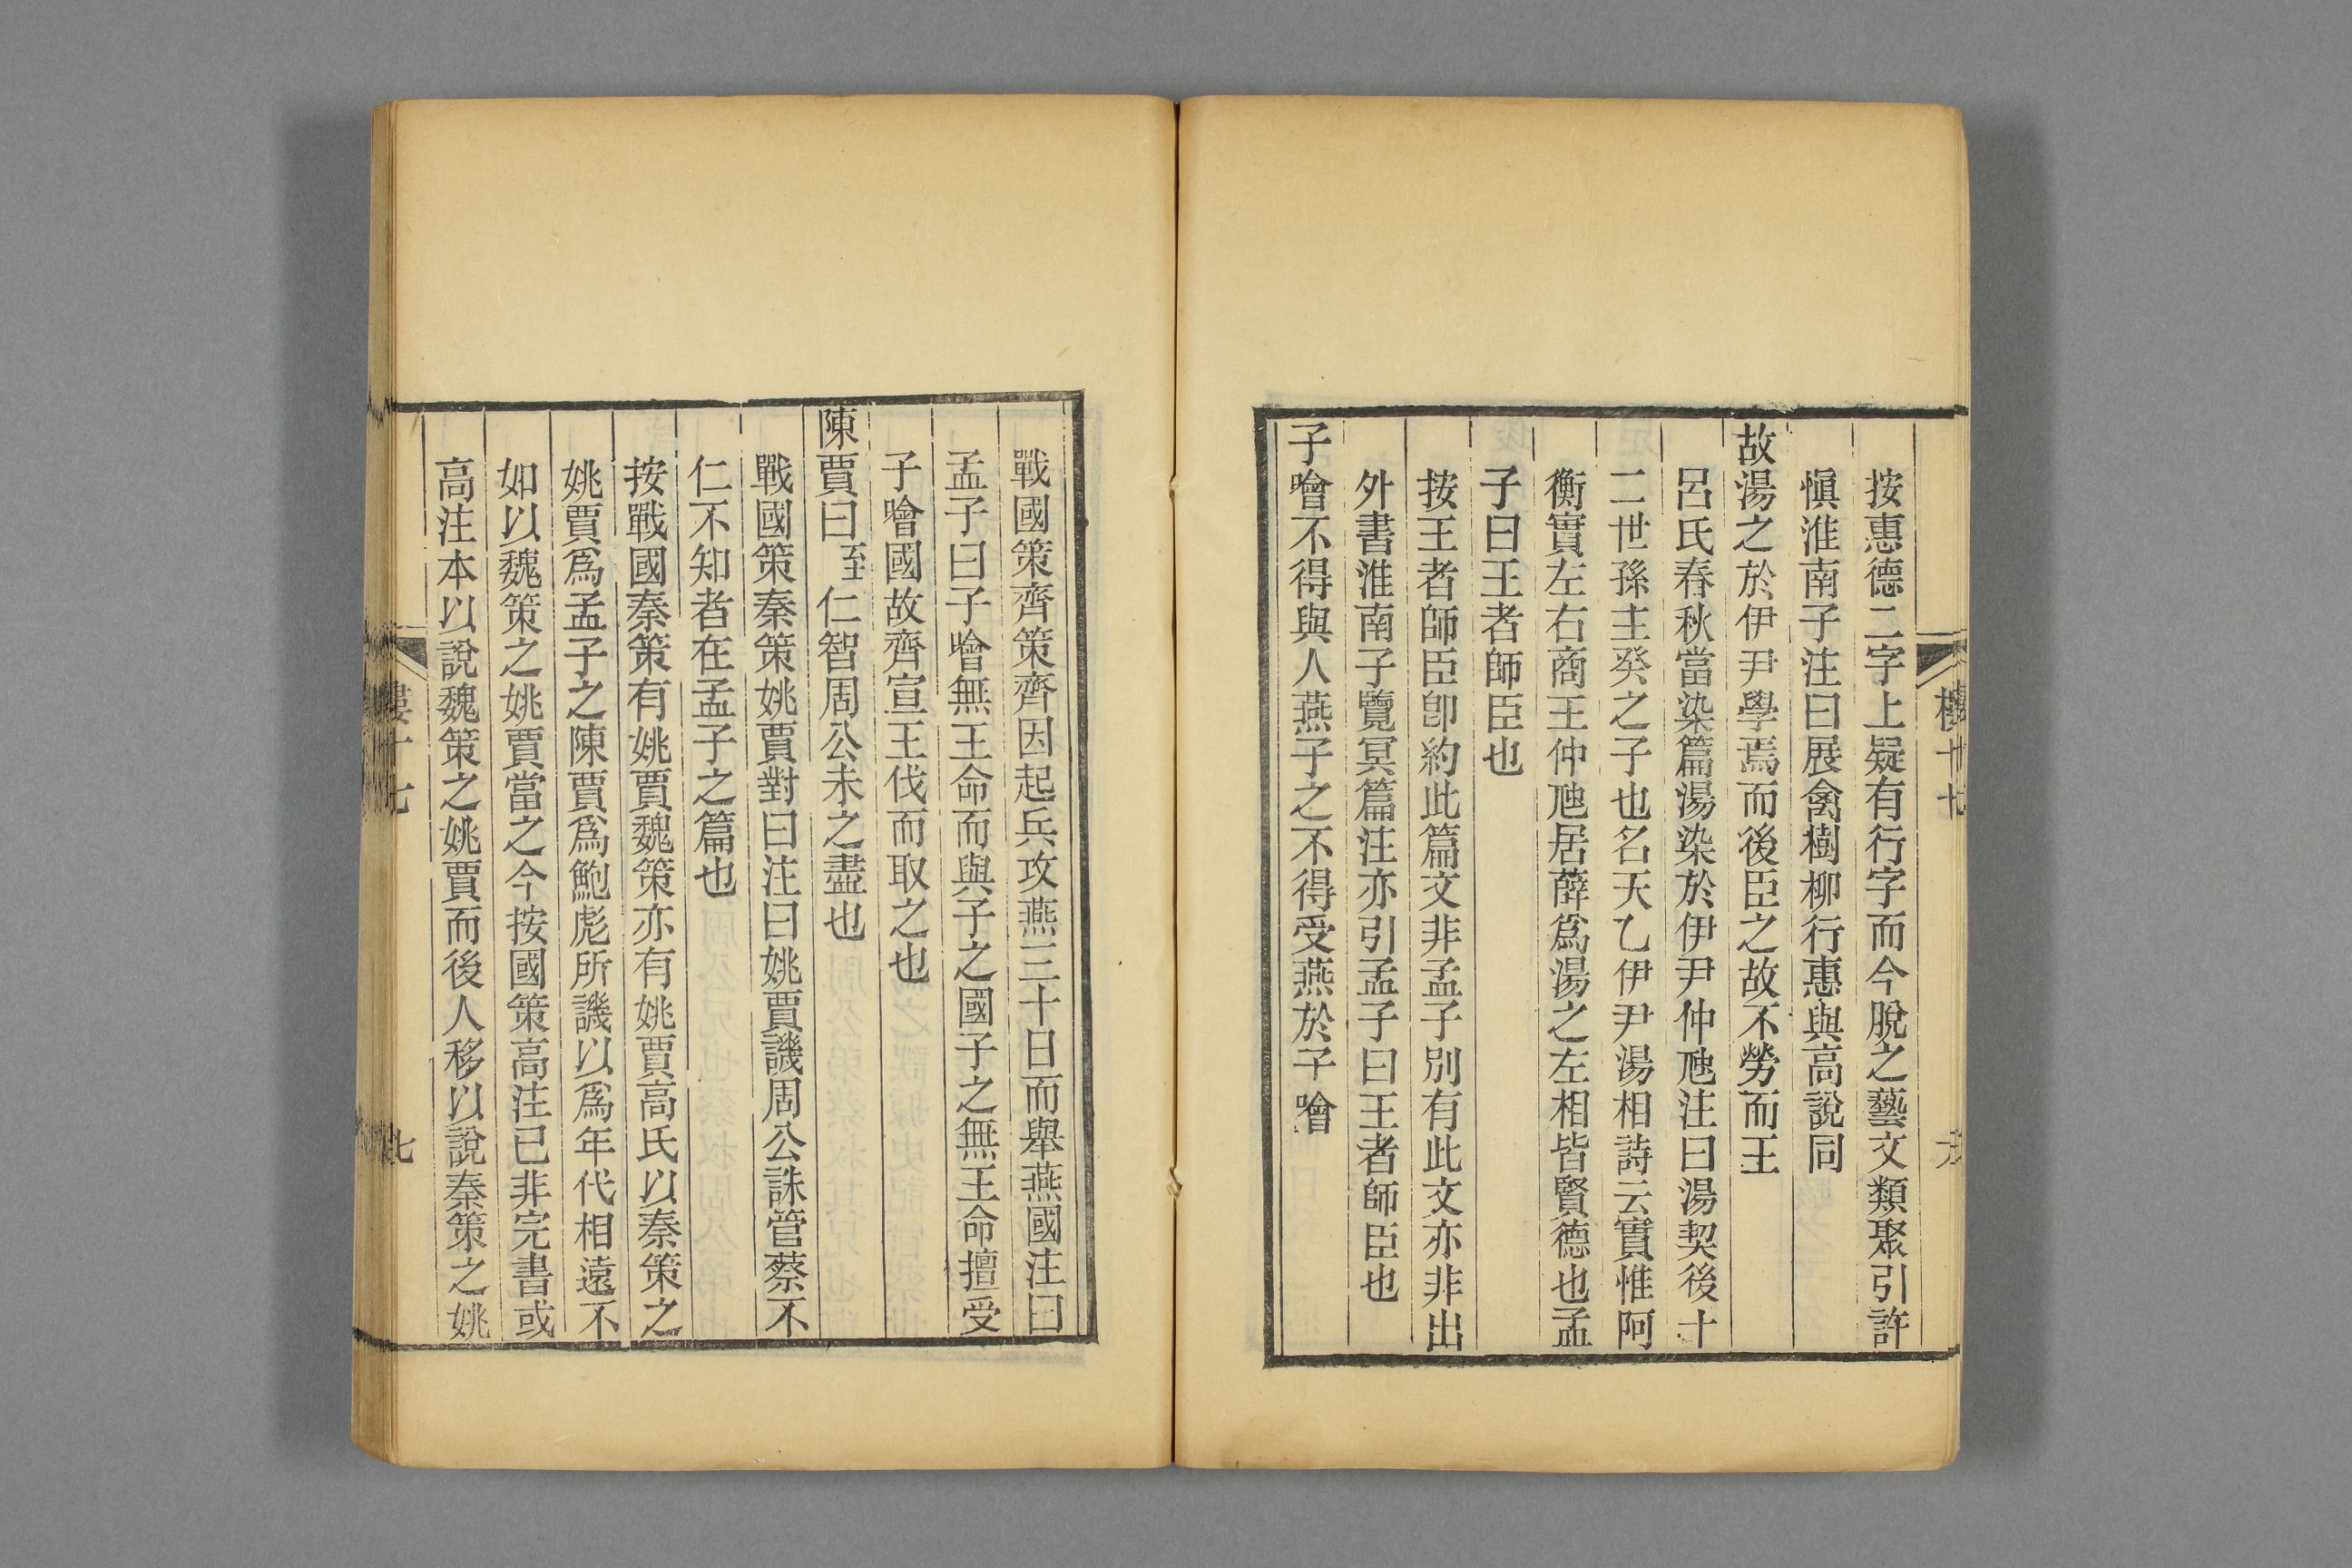 按惠德二字上疑有行字而今脫之藝文類聚引許
愼淮南子注曰展禽樹柳行惠與高說同
故湯之於伊尹學焉而後臣之故不勞而王
呂氏春秋當染篇湯染於伊尹仲虺注曰湯契後十
二世孫主癸之子也名天乙伊尹湯相詩云實惟阿
衡實左右商王仲虺居薛爲湯之左相皆賢德也孟
子曰王者師臣也
按王者師臣卽約此篇文非孟子別有此文亦非出
外書淮南子覽冥篇注亦引孟子曰王者師臣也
子噲不得與人燕子之不得受燕於子噲
戰國策齊策齊因起兵攻燕三十日而舉燕國注曰
孟子曰子噲無王命而與子之國子之無王命擅受
子噲國故齊宣王伐而取之也
陳賈曰至仁智周公未之盡也
戰國策秦策姚賈對曰注曰姚賈譏周公誅管蔡不
仁不知者在孟子之篇也
按戰國秦策有姚賈魏策亦有姚賈高氏以秦策之
姚賈爲孟子之陳賈爲鮑彪所譏以爲年代相遠不
如以魏策之姚賈當之今按國策高注已非完書或
高注本以說魏策之姚賈而後人移以說秦策之姚